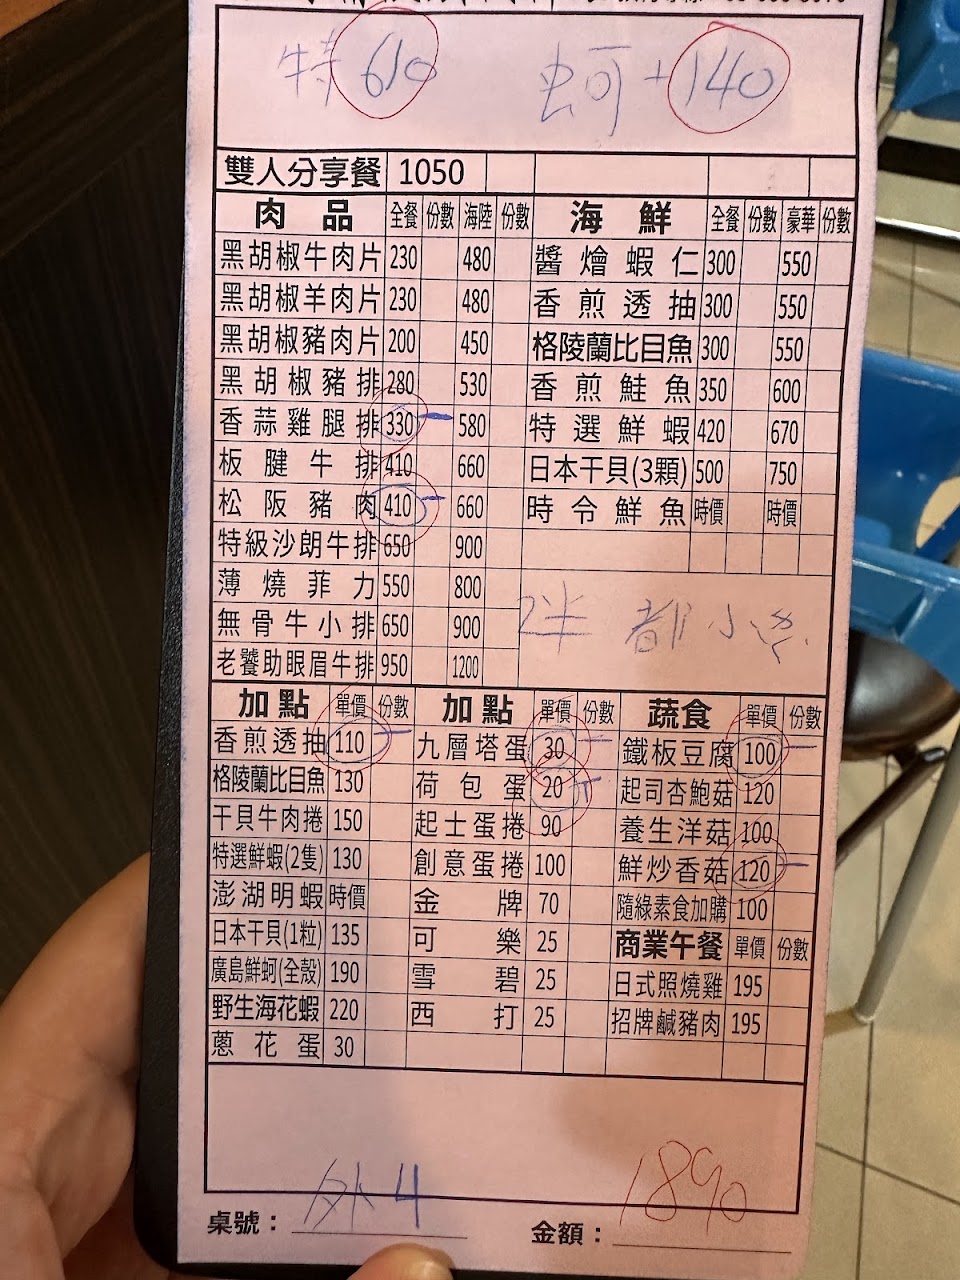 特 610 蚵 + 140
雙人分享餐 1050
肉品 全餐 份數 海陸 份數 海鮮 全餐 份數 豪華 份數
黑胡椒牛肉片 230 480 醬燴蝦仁 300 550
黑胡椒羊肉片 230 480 香煎透抽 300 550
黑胡椒豬肉片 200 450 格陵蘭比目魚 300 550
黑胡椒豬排 280 530 香煎鮭魚 350 600
香蒜雞腿排 330 580 特選鮮蝦 420 670
板腱牛排 410 660 日本干貝(3顆) 500 750
松阪豬肉 410 660 時令鮮魚 時價 時價
特級沙朗牛排 650 900
薄燒菲力 550 800
無骨牛小排 650 900
老饕助眼眉牛排 950 1200
都小
加點 單價 份數 加點 單價 份數 蔬食 單價 份數
香煎透抽 110 九層塔蛋 30 鐵板豆腐 100
格陵蘭比目魚 130 荷包蛋 20 起司杏鮑菇 120
干貝牛肉捲 150 起士蛋捲 90 養生洋菇 100
特選鮮蝦(2隻) 130 創意蛋捲 100 鮮炒香菇 120
澎湖明蝦 時價 金牌 70 隨緣素食加購 100
日本干貝(1粒) 135 可樂 25 商業午餐 單價 份數
廣島鮮蚵(全殼) 190 雪碧 25 日式照燒雞 195
野生海花蝦 220 西打 25 招牌鹹豬肉 195
蔥花蛋 30
桌號： 外4 金額： 1890